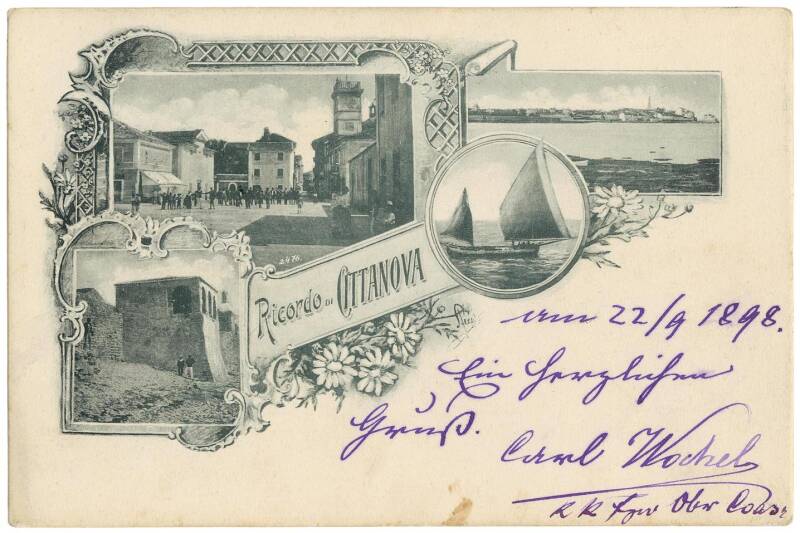 2476.
Ricordo di CITTANOVA
am 22/9 1898.
Ein herzlichen
Gruß.
Carl
KK Obr